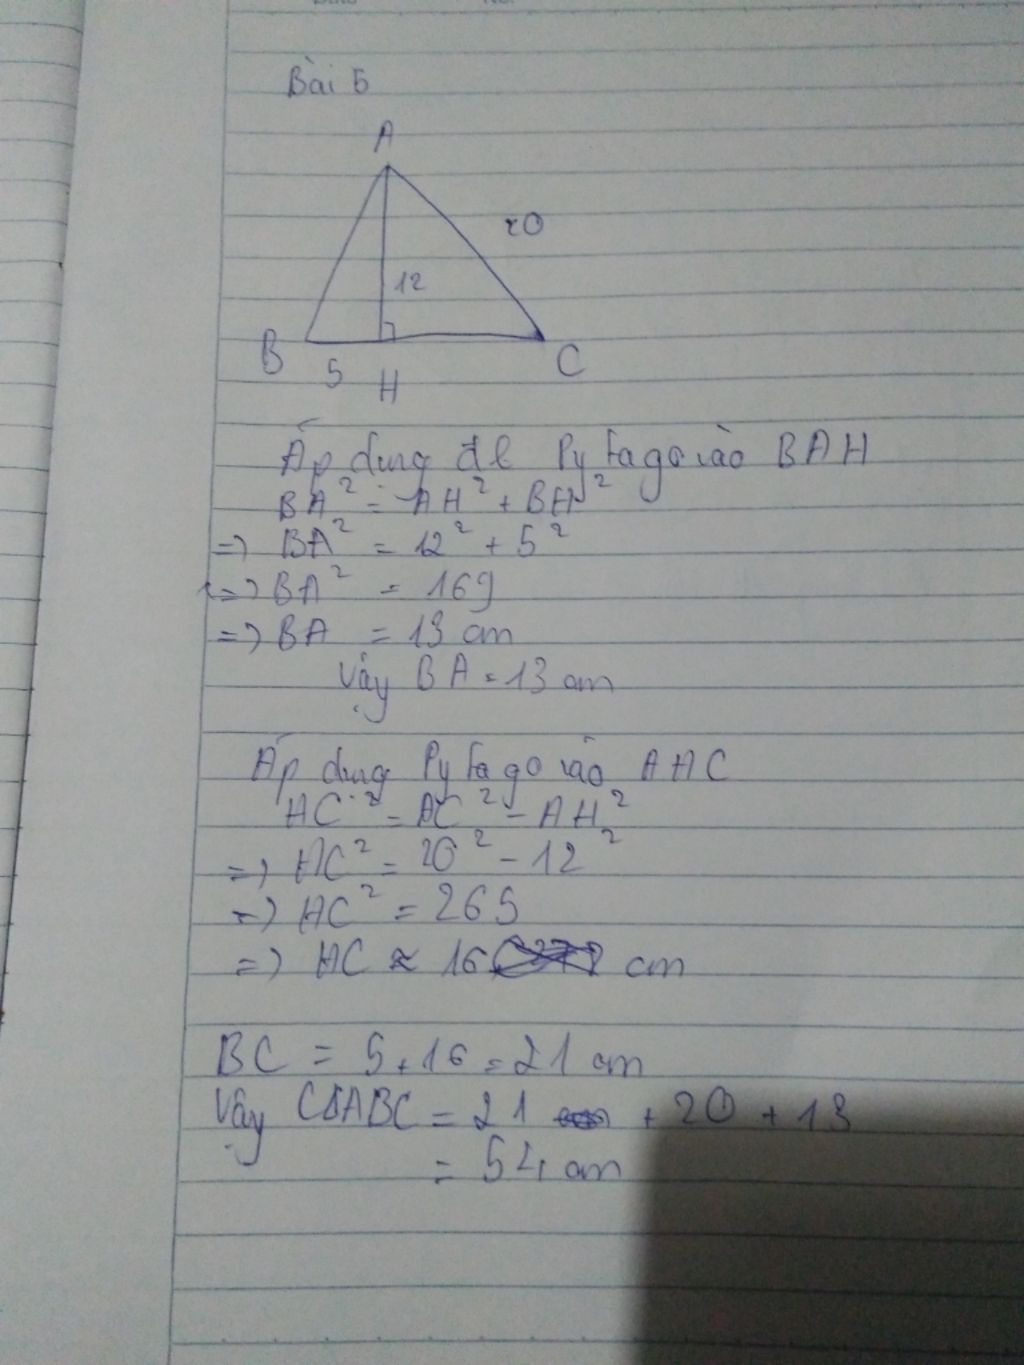 Bài 5
A
20
12
B
5
H
C
Áp dụng đl Pytago vào BAH
BA² = AH² + BH²
=> BA² = 12² + 5²
=> BA² = 169
=> BA = 13 cm
Vậy BA = 13 cm
Áp dụng Pytago vào AHC
HC² = AC² - AH²
=> HC² = 20² - 12²
=> HC² = 265
=> HC ≈ 16 cm
BC = 5 + 16 = 21 cm
Vậy CΔABC = 21 + 20 + 13
= 54 cm